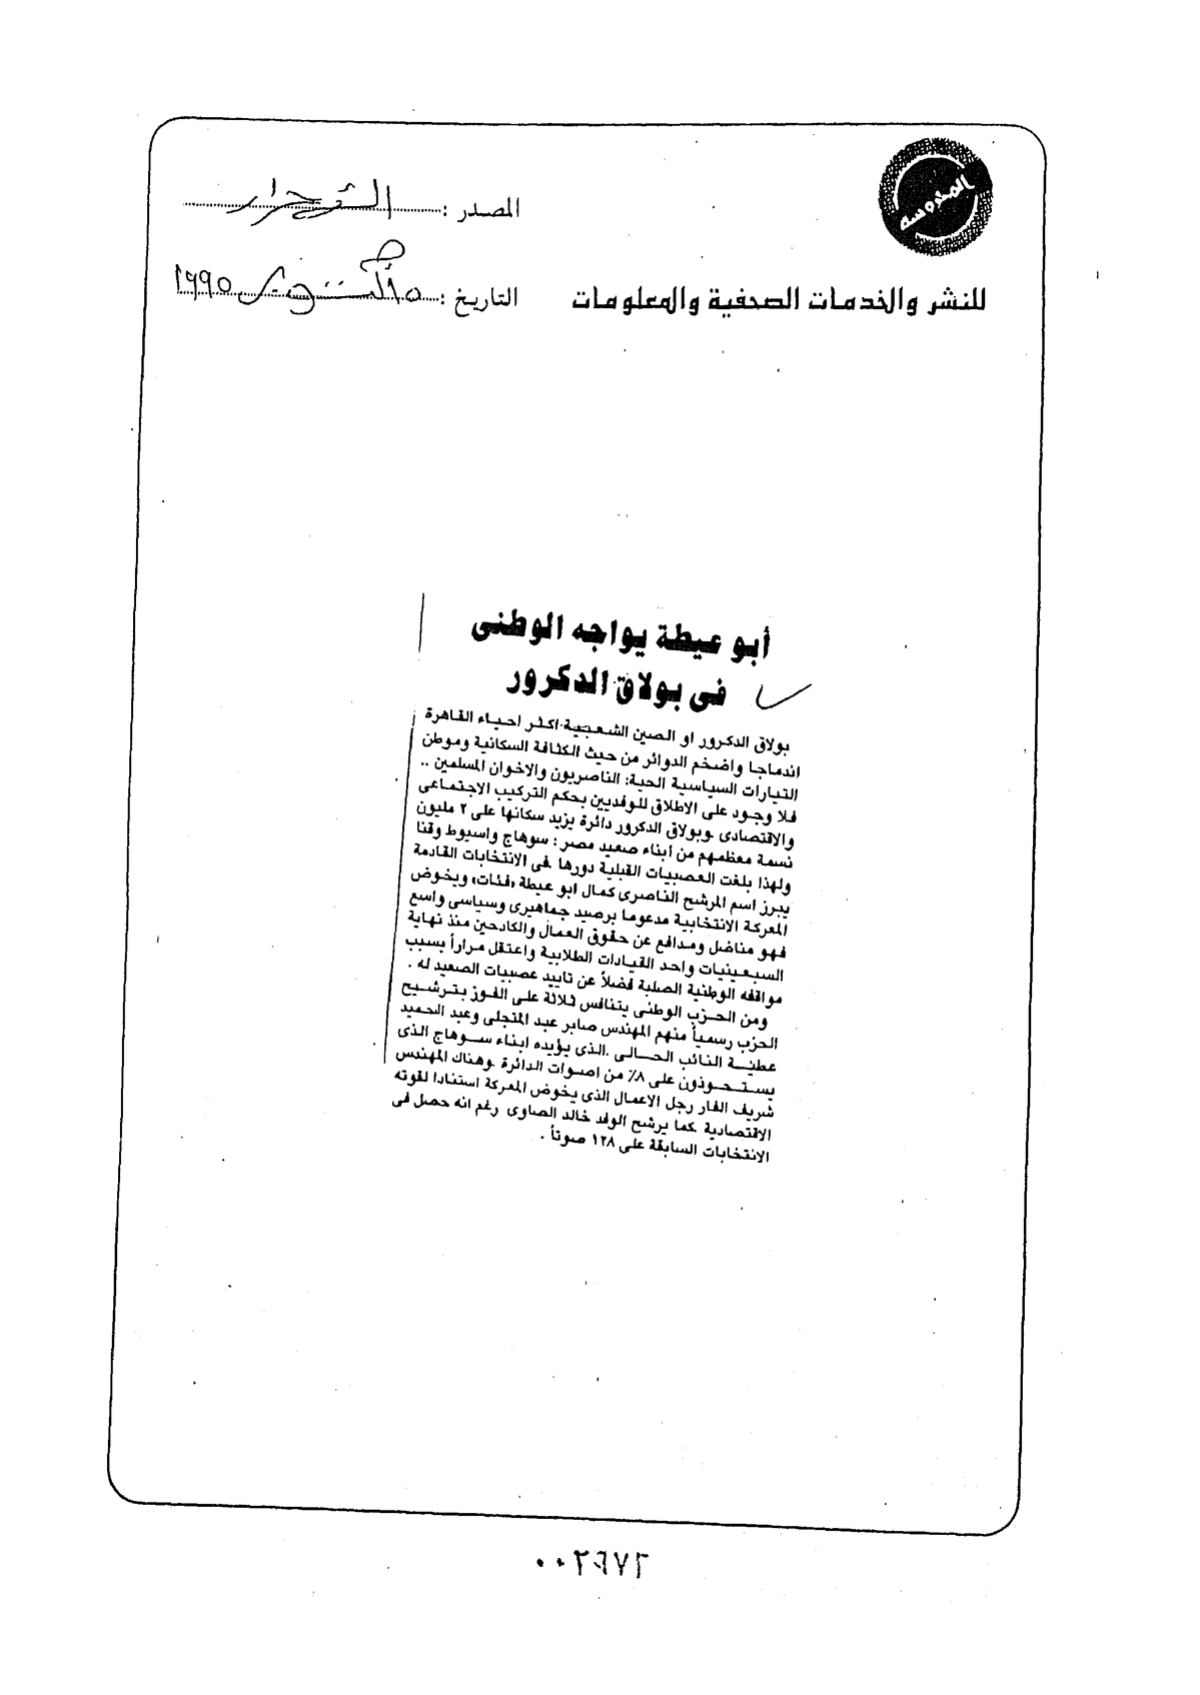 المحروسة
المصدر :
للنشر والخدمات الصحفية والمعلومات
التاريخ : ١٩٩٥
أبو عيطة يواجه الوطنى
فى بولاق الدكرور
بولاق الدكرور او الصين الشعبية اكثر احياء القاهرة
اندماجا واضخم الدوائر من حيث الكثافة السكانية وموطن
التيارات السياسية الحية: الناصريون والاخوان المسلمين ..
فلا وجود على الاطلاق للوفديين بحكم التركيب الاجتماعى
والاقتصادى وبولاق الدكرور دائرة يزيد سكانها على ٢ مليون
نسمة معظمهم من ابناء صعيد مصر : سوهاج واسيوط وقنا
ولهذا بلغت العصبيات القبلية دورها فى الانتخابات القادمة
يبرز اسم المرشح الناصرى كمال ابو عيطة «فئات» ويخوض
المعركة الانتخابية مدعوما برصيد جماهيرى وسياسى واسع
فهو مناضل ومدافع عن حقوق العمال والكادحين منذ نهاية
السبعينيات واحد القيادات الطلابية واعتقل مراراً بسبب
مواقفه الوطنية الصلبة فضلاً عن تاييد عصبيات الصعيد له .
ومن الحزب الوطنى يتنافس ثلاثة على الفوز بترشيح
الحزب رسمياً منهم المهندس صابر عبد المتجلى وعبد الحميد
عطية النائب الحالى .الذى يؤيده ابناء سوهاج الذى
يستحوذون على ٨٪ من اصوات الدائرة .وهناك المهندس
شريف الفار رجل الاعمال الذى يخوض المعركة استنادا لقوته
الاقتصادية كما يرشح الوفد خالد الصاوى رغم انه حصل فى
الانتخابات السابقة على ١٢٨ صوتاً .